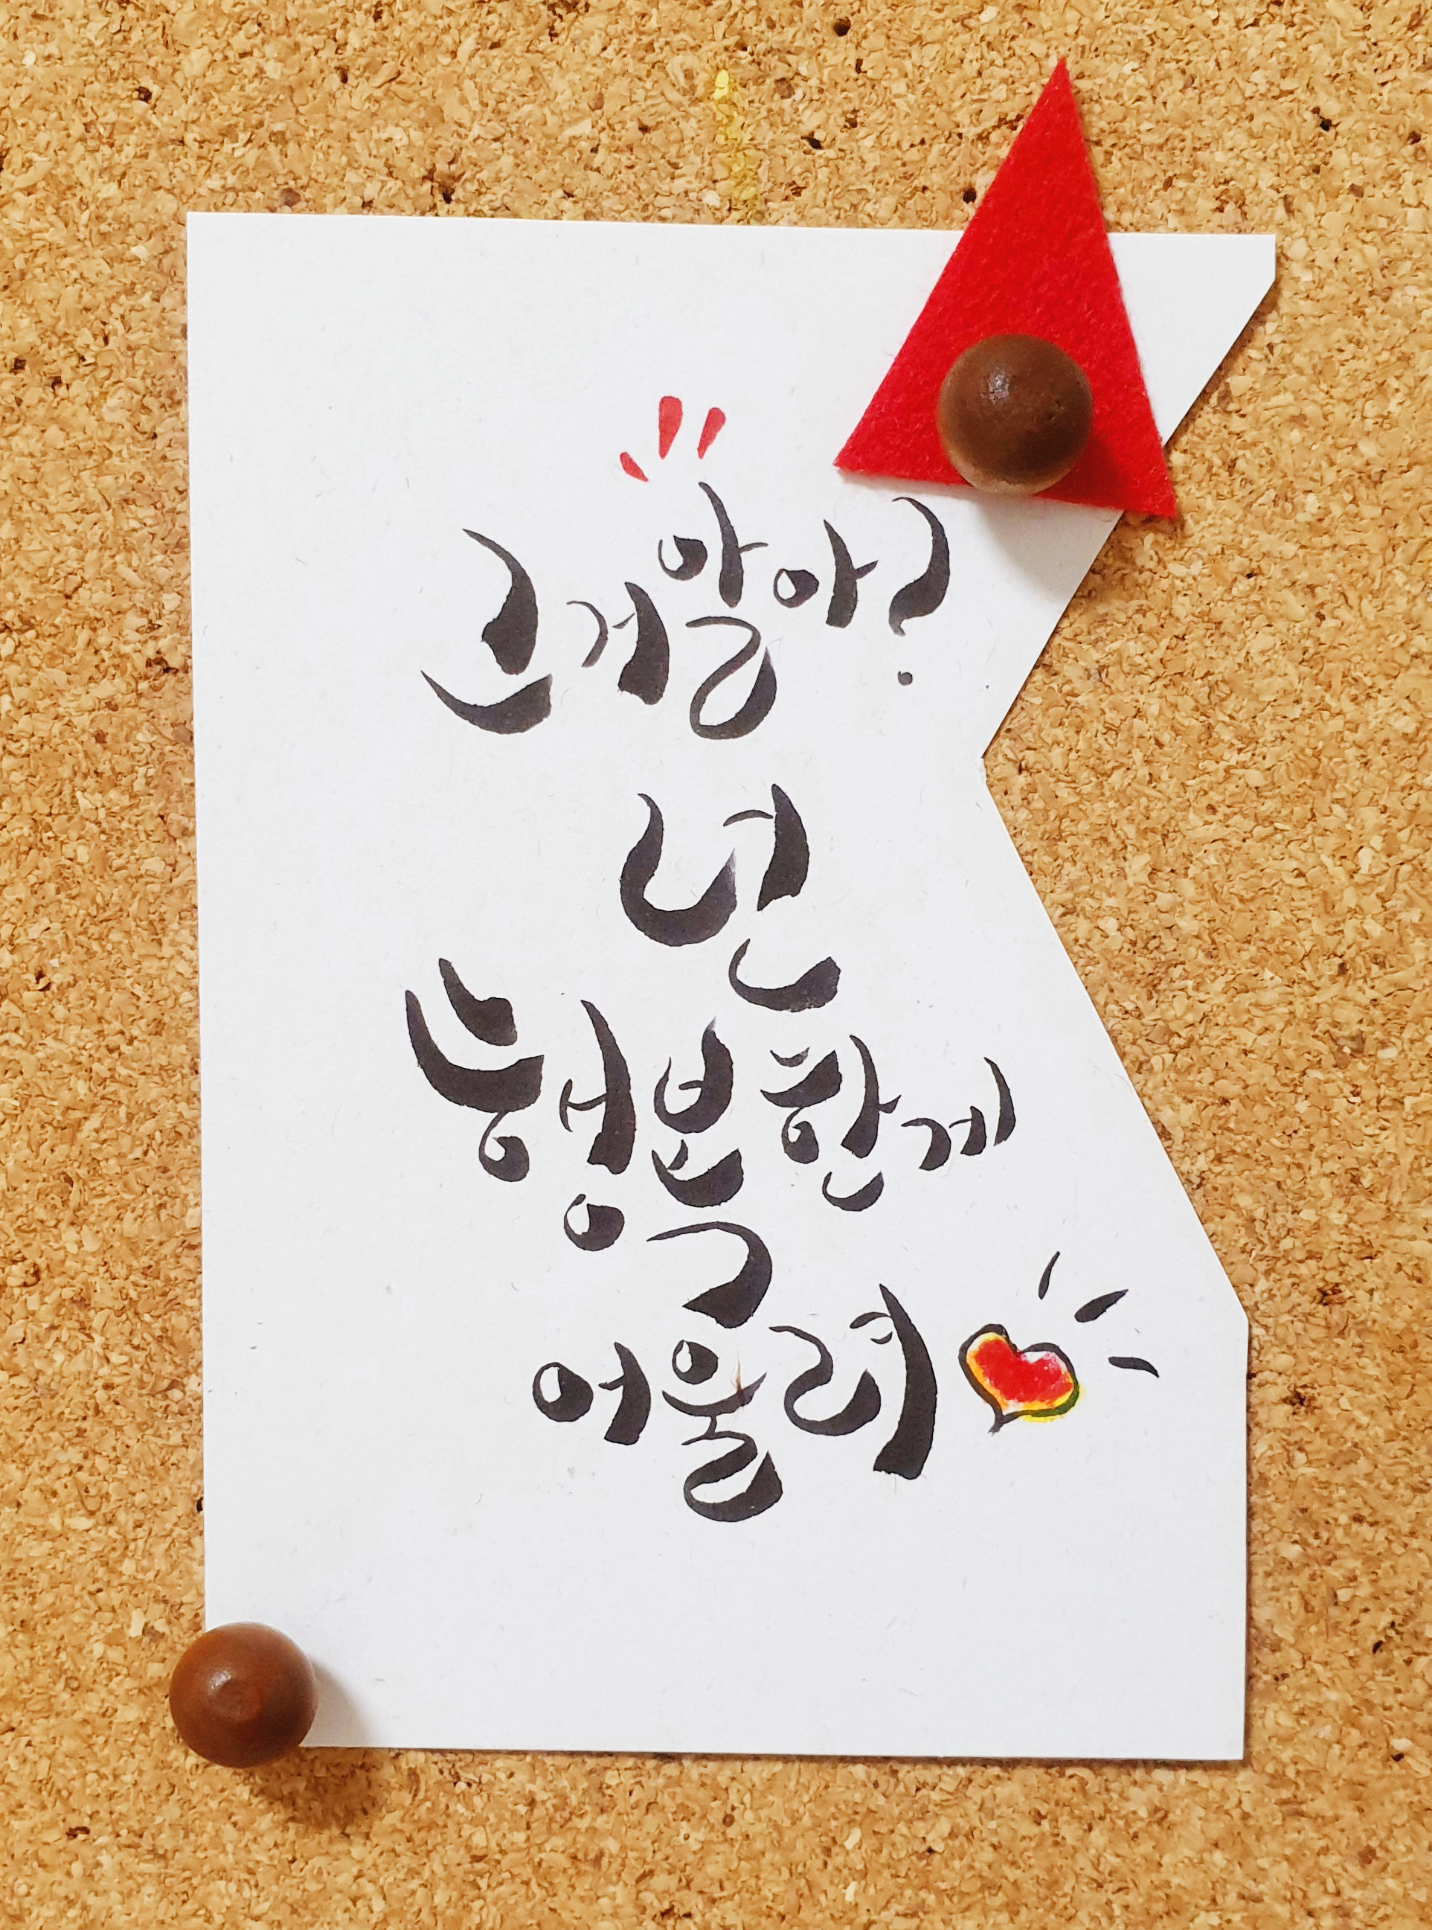 그거 알아?
넌
행복한게
어울려